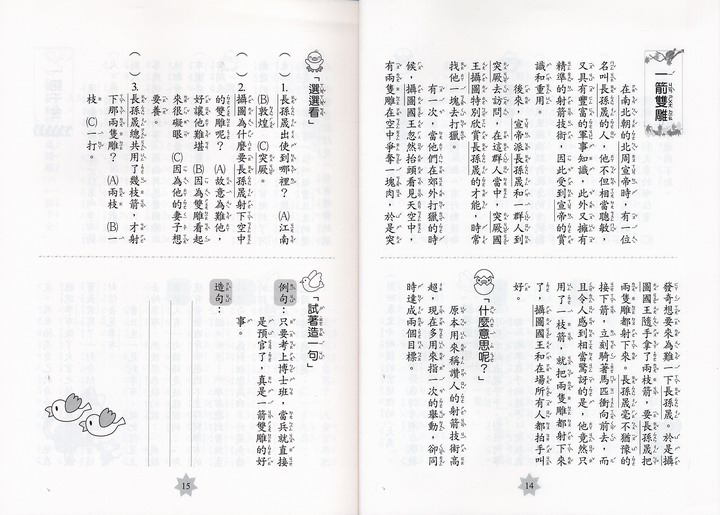 一箭雙雕
在南北朝的北周宣帝時，有一位
名叫長孫晟的人，他不但相當聰敏，
又具有豐富的軍事知識，此外又擁有
精準的射箭技術，因此受到宣帝的賞
識和重用。
後來，宣帝派長孫晟和一群人到
突厥去訪問，在這群人當中，突厥國
王攝圖特別欣賞長孫晟的才能，時常
找他一塊去打獵。
有一次，當他們在郊外打獵的時
候，攝圖國王忽然抬頭看見天空中，
有兩隻雕在空中爭奪一塊肉。於是突
發奇想要來為難一下長孫晟。於是攝
圖國王隨手拿了兩枝箭，要長孫晟把
兩隻雕都射下來。長孫晟毫不猶豫的
接下箭，立刻騎著馬匹衝向前去，而
且令人感到相當驚訝的是，他竟然只
用了一枝箭，就把兩隻雕都射下來
了，攝圖國王和在場所有人都拍手叫
好。
「什麼意思呢？」
原本用來稱讚人的射箭技術高
超，現在多用來指一次的舉動，卻同
時達成兩個目標。
14
「選選看」
（ ）1.長孫晟出使到哪裡？ (A)江南
(B)敦煌 (C)突厥。
（ ）2.攝圖為什麼要長孫晟射下空中
的雙雕呢？ (A)故意為難他，
好讓他難堪 (B)因為雙雕看起
來很礙眼 (C)因為他的妻子想
要養。
（ ）3.長孫晟總共用了幾枝箭，才射
下那兩隻雕？ (A)兩枝 (B)一
枝 (C)一打。
「試著造一句」
例句：只要考上博士班，當兵就直接
是預官了，真是一箭雙雕的好
事。
造句：
15